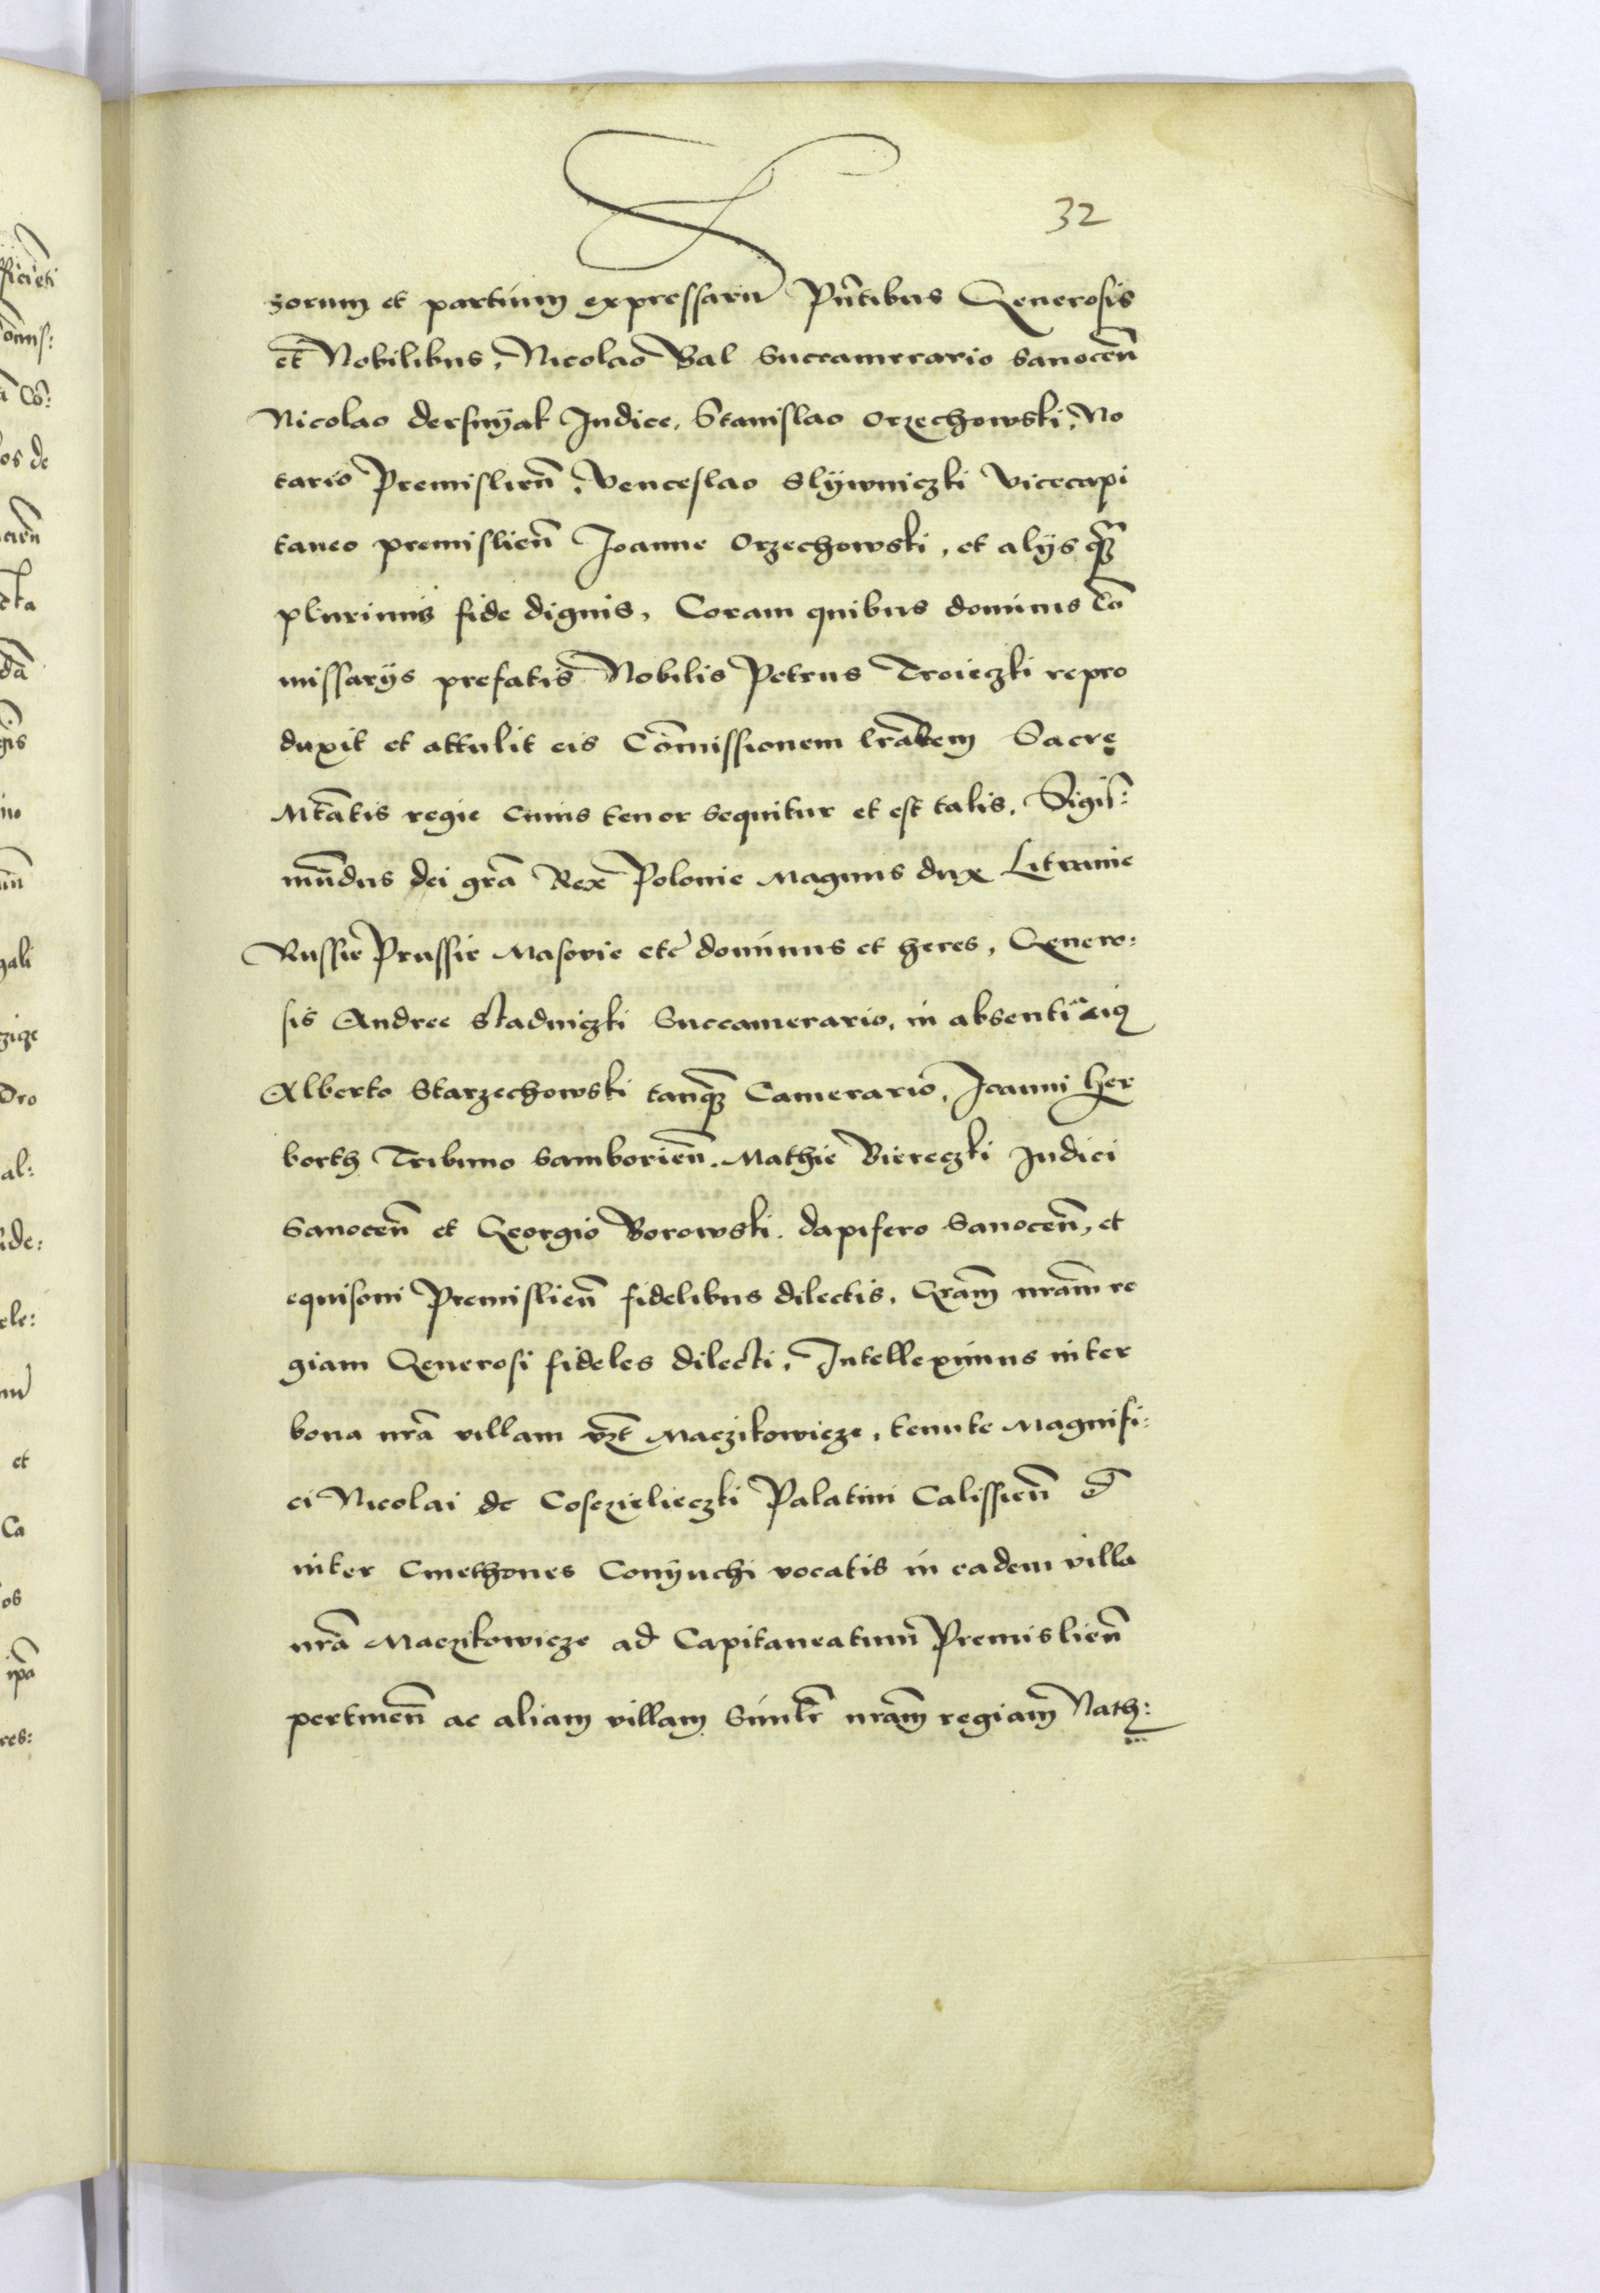 32
riorum et partium expressarũ Pñtibus Generosis
et Nobilibus, Nicolao Bal Succamerario Sanoceñ
Nicolao dersnÿak Iudice, Stanislao Orzechowski, No
tario Premislieñ, Venceslao Slÿwniczki Vicecapi
taneo premislieñ Joanne Orzechowski, et alÿs q̃z
plurimis fide dignis, Coram quibus dominis Cõ
missarÿs prefatis Nobilis Petrus Troieczki repro
duxit et attulit eis Cõmissionem lrãlem Sacrę
Mtãtis regie cuius tenor sequitur et est talis. Sigis:
mũdus dei grã Rex Polonie Magnus dux Lituanie
Russie Prussie Masovie etc dominus et heres, Genero:
sis Andree Stadniczki Succamerario, in absentia eiꝰ
Alberto Starzechowski tanq̃z Camerario, Joanni Her
borth Tribuno Samborieñ. Mathie Biereczki Iudici
Sanoceñ et Georgio Borowski dapifero Sanoceñ, et
equisoni Premislieñ fidelibus dilectis, Grãm nrãm re
giam Generosi fideles dilecti, Intelleximus inter
bona nrã villam vz̃ Maczkowicze, tenute Magnifi:
ci Nicolai de Cosczielieczki Palatini Calissieñ &
inter Cmethones Conÿuchi vocatis in eadem villa
nrã Maczkowicze ad Capitaneatum Premislieñ
pertineñ ac aliam villam Similr nrãm regiam Nath: